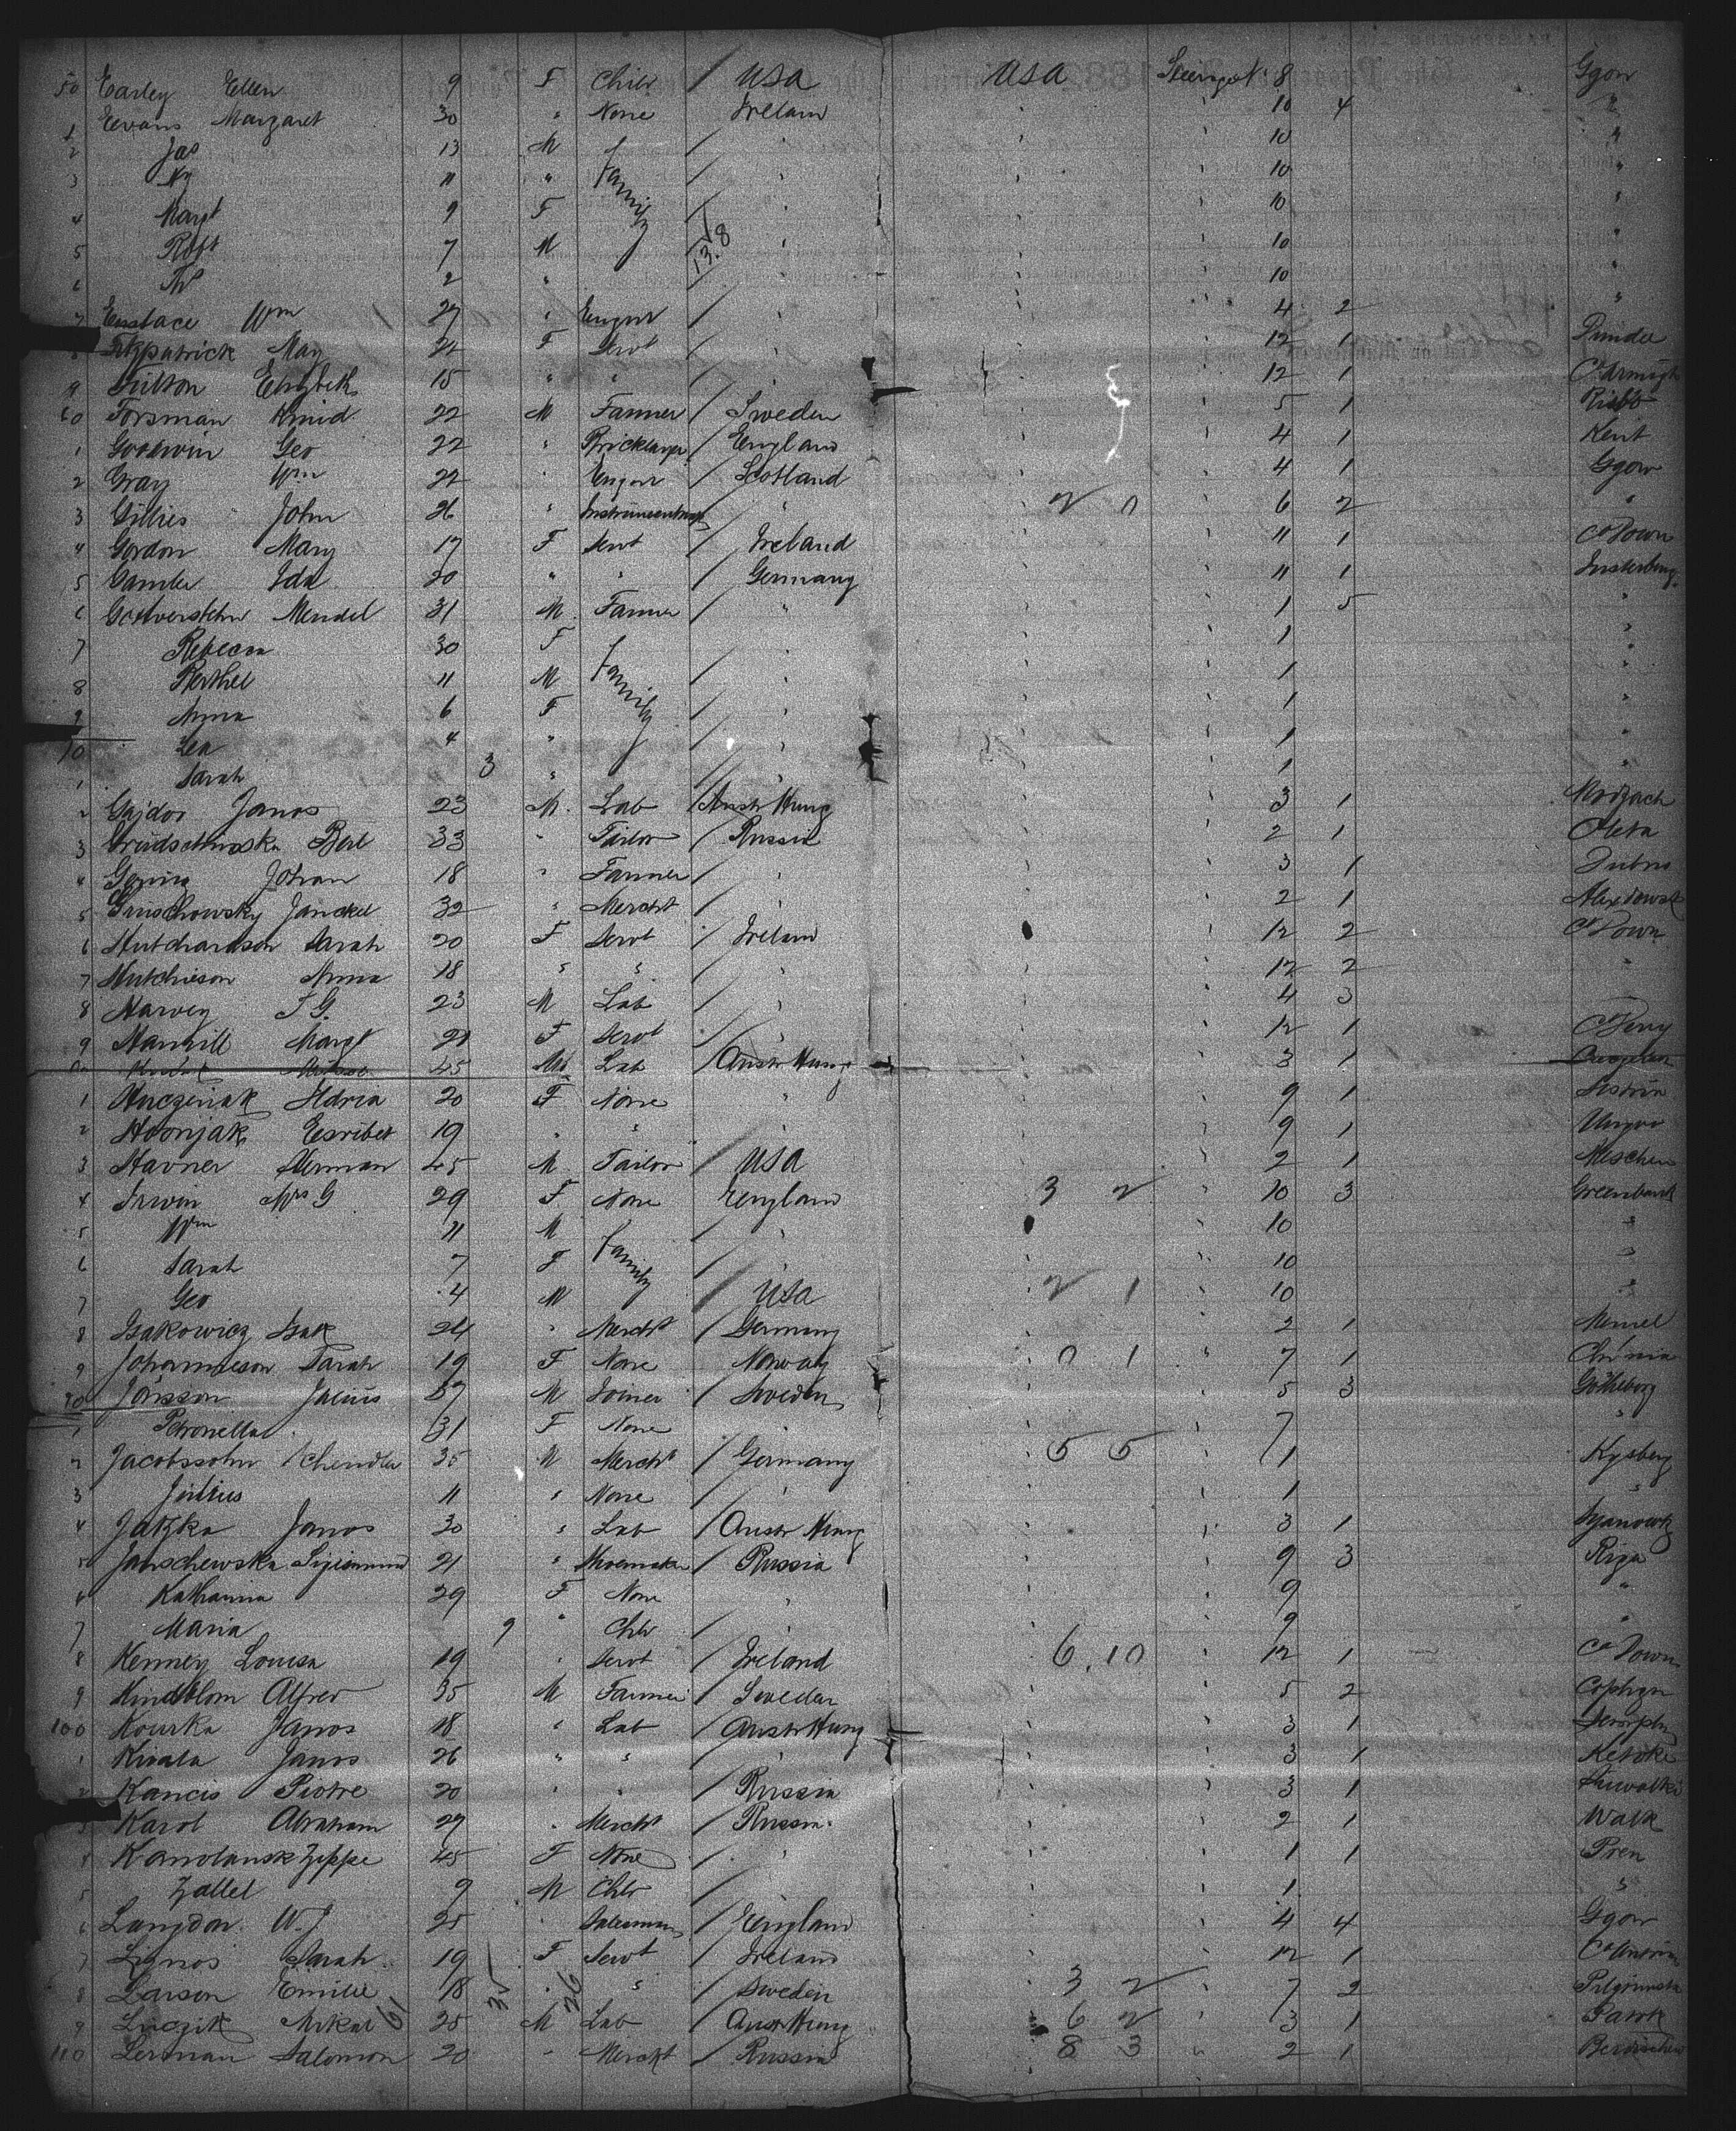 50 Earley Ellen 9 F Child / USA USA Steerage No. 8 Ggow
1 Eevans Margaret 30 " None Ireland 10 4 "
2 Jas 13 M Family / " 10 "
3 Hy 11 " / " 10 "
4 Margt 9 F / " 10 "
5 Robt 7 M / " 10 "
13.8
6 Th 2 " / 10 "
7 Eustace Wm 27 " Engnr / " 4 2 "
8 Fitzpatrick May 22 F Servt / " 12 1 Dundee
9 Fulton Elizbeth 15 " " / " 12 1 Co Armagh
60 Forsman 22 M Farmer / Sweden 5 1
1 Goodwin Geo 22 " Bricklayer / England 4 1 Kent
2 Gray Wm 22 " Engnr / Scotland 4 1 Ggow
3 Gillies John 26 " / " 2 0 6 2 "
4 Gordon Mary 17 F Servt / Ireland 11 1 Co Down
5 Ida 20 " " / Germany 11 1 Insterburg
6 Mendel 31 M Farmer / " 1 5 "
7 Rebecca 30 F Family " 1 "
8 Berthel 11 M / " 1 "
9 Anna 6 F / " 1 "
70 Lea 4 " / " 1 "
1 Sarah 3 " / " 1 "
2 Gajdos Janos 23 M Lab / Austr Hung 3 1
3 Berl 33 " Tailor / Russia 2 1
4 Johan 18 " Farmer / " 3 1
5 Gruschowsky Janckel 32 " Mercht / " 2 1
6 Hutchardson Sarah 20 F Servt / Ireland 12 2 Co Down
7 Hutchieson Anna 18 " " / " 12 2 "
8 Harvey T G. 23 M Lab / " 4 3 "
9 Margt 21 F Servt / " 12 1 Co Derry
45 M Lab / Austr Hung 3 1
1 20 F None " 9 1
2 Hoonjak 19 " " " 9 1
3 Havner Herman 45 M Tailor / USA 2 1
4 Irwin Mrs G 29 F None England 3 2 10 3 Greenbank
5 Wm 11 M Family / " 10 "
6 Sarah 7 F / " 10 "
7 Geo 4 M / USA 2 1 10 "
8 Isakowicz Isak 24 " Mercht / Germany 2 1 Memel
9 Johannieson Sarah 19 F None Norway 0 1 7 1
90 Jonsson Julius 37 M Joiner / Sweden 5 3 Gotheborg
1 Petronella 31 F None 7 "
2 Jacobssohn Schendler 35 M Mercht / Germany 5 5 1
3 Julius 11 " None / " 1 "
4 Jatzka Janos 30 " Lab / Austr Hung 3 1
5 Janschewska 21 " Shoemaker / Russia 9 3 Riga
6 Katharina 29 F None " 9 "
7 Maria 9 " Chld / " 9 "
8 Kenney Louisa 19 " Servt / Ireland 6.10 12 1 Co Down
9 Kindblom Alfred 35 M Farmer / Sweden 5 2 Cophgn
100 Kourka Janos 18 " Lab / Austr Hung 3 1
1 Kivala Janos 26 " " " 3 1
2 Kancis Piotre 20 " " / Russia 3 1 Suwalki
3 Karol Abraham 27 " Mercht / Russia 2 1 Walk
4 Zippe 45 F None / " 1 1 Pren
5 Zallel 9 M Chld / 1 "
6 Langdon W. J 25 " Salesman / England 4 4 Ggow
7 Sarah 19 F Servt / Ireland 12 1 Co Antrim
8 Larson Emilie 18 " " / Sweden 3 2 7 2
9 Luczik Mikal 25 M Lab / Austr Hung 6 2 3 1
110 Lerman Salomon 20 " Mercht / Russia 8 3 2 1
61 35 26